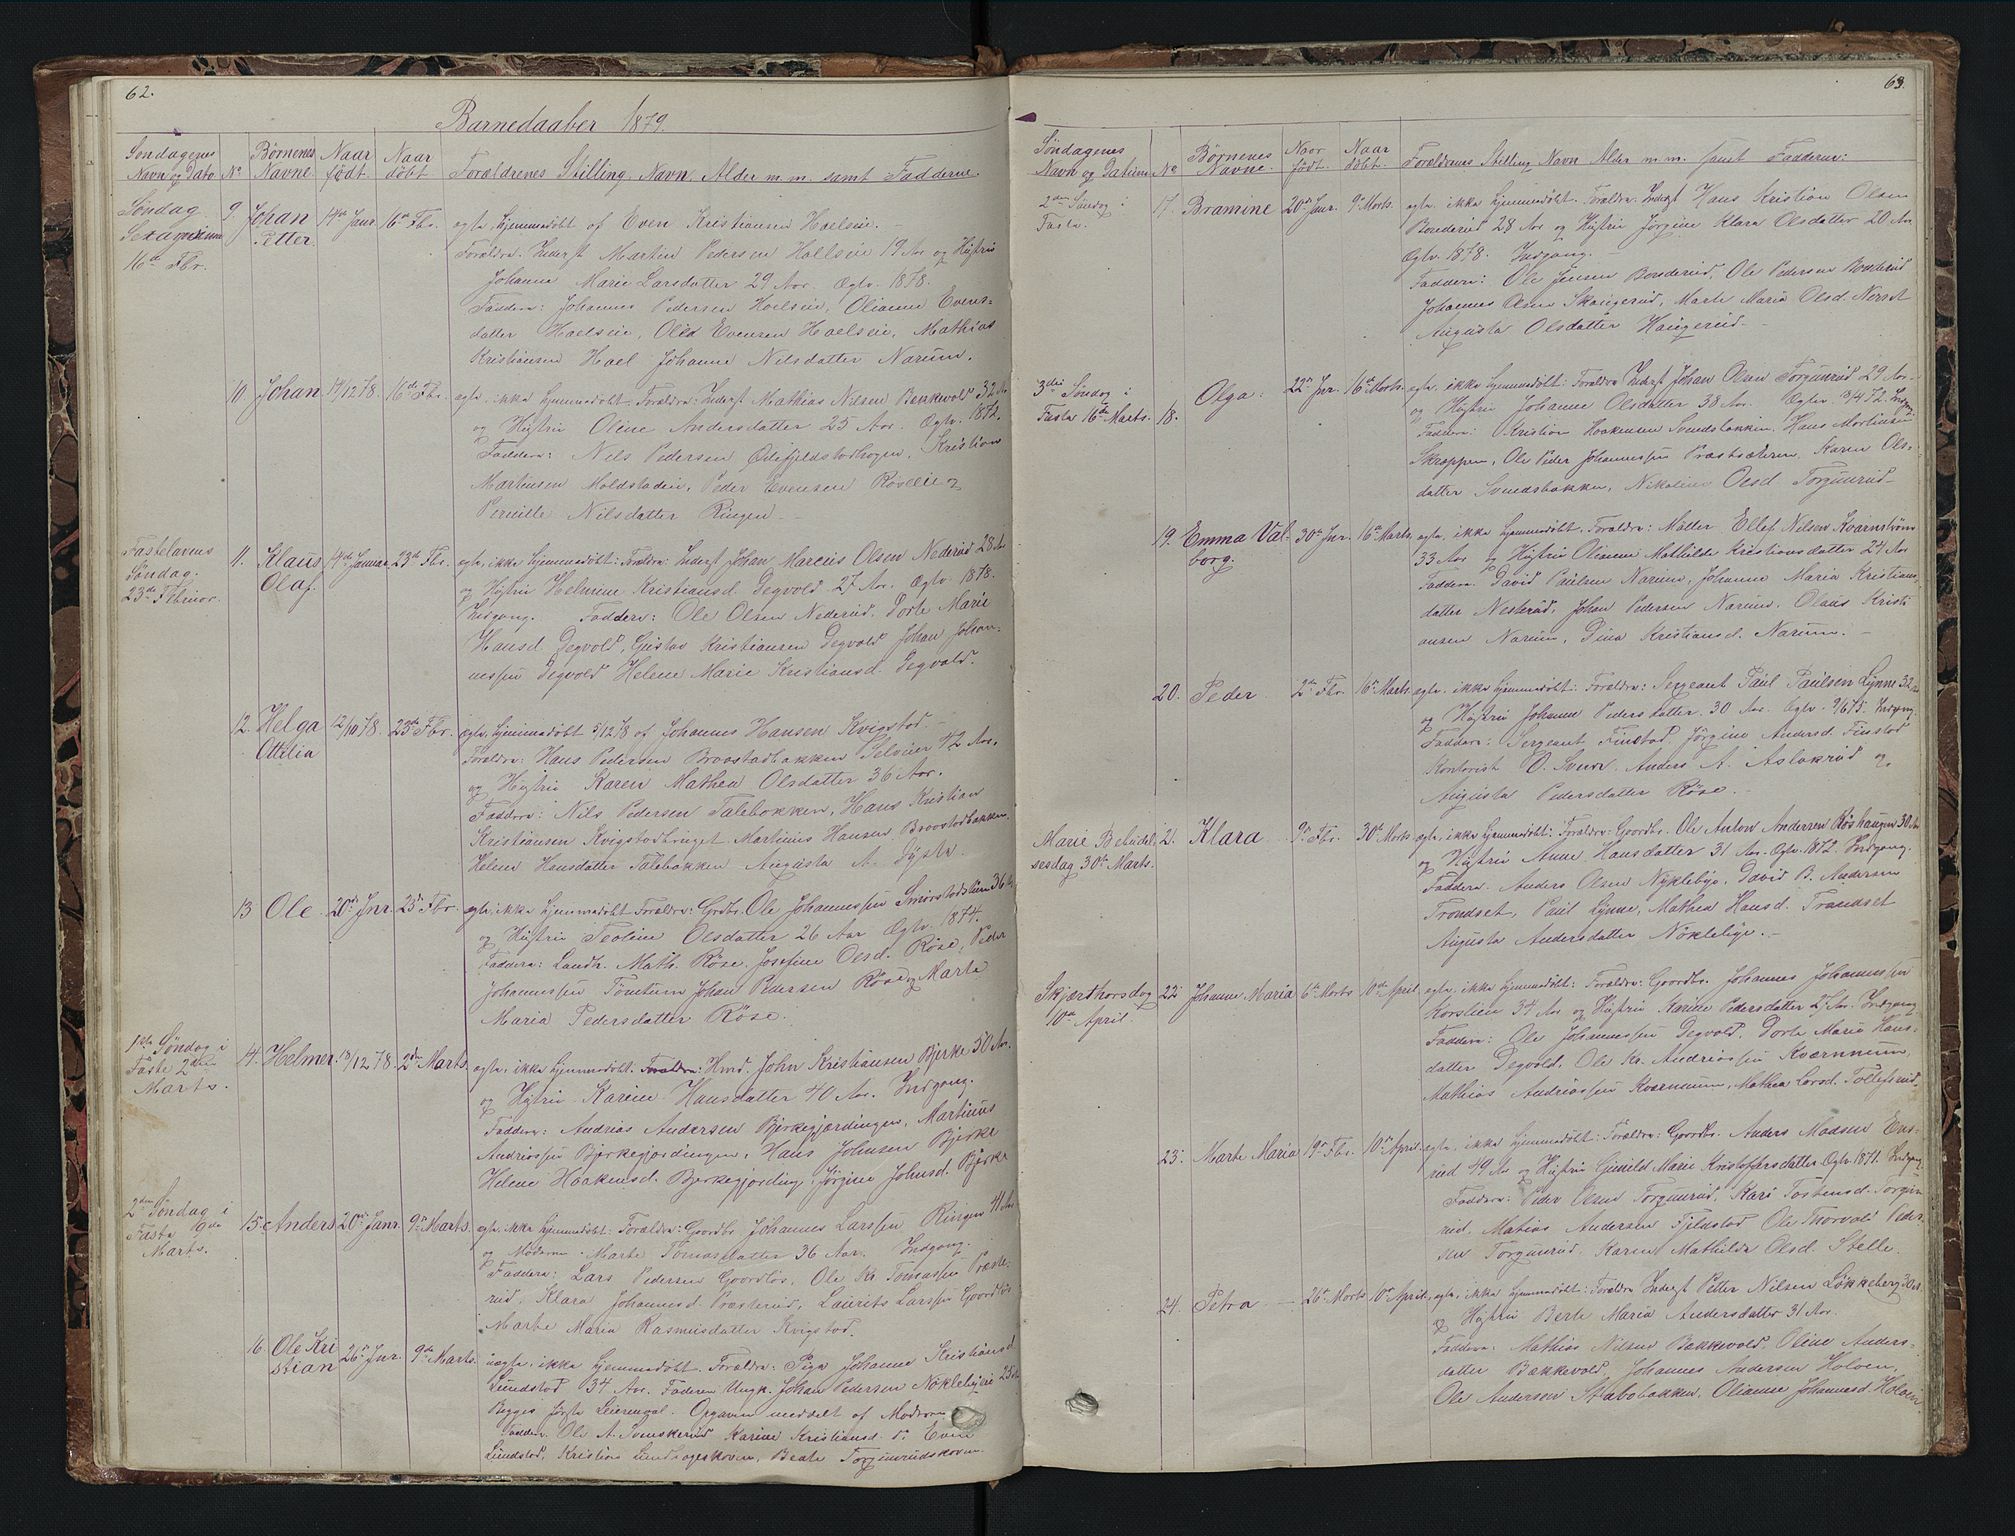 62.
Barnedaaber 1879.
Søndagens Navn og Dato No Børnenes Navne. Naar født. Naar døbt Forældrenes Stilling, Navn, Alder m.m. samt Fadderne.
Søndag Sexagesima 16de Fbr. 9. Johan Petter 14de Janr. 16de Fbr. ægte, hjemmedøbt af Even Kristiansen Haelseie.
Forældre: Inderst Martin Pedersen Haelseie 19 Aar og Hustru
Johanne Marie Larsdatter 29 Aar. Ægtv. 1878.
Faddere: Johannes Pedersen Haelseie, Oliane Evens-
datter Haelseie, Evensen Haelseie, Mathias
Kristiansen Hael Johanne Nilsdatter Narum.
10. Johan 17/12 78. 16de Fbr. ægte, ikke hjemmedøbt. Forældre: Inderst Mathias Nilsen Bækkevold 32 Aar
og Hustru Oline Andersdatter 25 Aar. Ægtv. 1872.
Faddere: Nils Pedersen Kristian
Martinsen Peder Evensen og
Pernille Nilsdatter Ringen.
Fastelavens Søndag. 23de Februar. 11. Klaus Olaf. 14de Januar. 23de Fbr. ægte, ikke hjemmedøbt: Forældre: Inderst Johan Marcus Olsen Nederud 28 Aar
og Hustru Helmine Kristiansd. Degvold 27 Aar. Ægtv. 1878.
Indgang. Faddere: Ole Olsen Nederud, Dorte Marie
Hansd. Degvold, Gustav Kristiansen Degvold Johan Johan-
nessen Degvold Helene Marie Kristiansd. Degvold.
12. Helga Ottilia 12/10 78. 23de Fbr. ægte, hjemmedøbt 5/12 78 af Johannes Hansen Kvigstad
Forældre: Hans Pedersen Braastadbakken Selveier 42 Aar.
og Hustru Karen Mathea Olsdatter 36 Aar.
Faddere: Nils Pedersen Talebakken, Hans Kristian
Kristiansen Martinus Hansen Braastadbakken.
Helene Hansdatter Talebakken Augusta A. Dyste.
13 Ole 20de Jnr. 23de Fbr. ægte, ikke hjemmedøbt Forældre: Grdbr. Ole Johannessen 36 Aar
og Hustru Teoline Olsdatter 26 Aar Ægtv. 1874.
Faddere: Landh. Math. Røse, Josefine Olsd. Røse, Peder
Johannessen Tømtum Johan Pedersen Røse og Marte
Maria Pedersdatter Røse.
1ste Søndag i Faste 2den Marts. 14. Helmer 13/12 78. 2den Marts. ægte, ikke hjemmedøbt. Forældre: Hmd. John Kristiansen Bjerke 50 Aar.
og Hustru Karine Hansdatter 40 Aar. Indgang.
Faddere: Andreas Andersen Bjerkegjordingen, Martinus
Andreassen Bjerkegjordingen, Hans Johnsen Bjerke
Helene Haakensd. Bjerkegjording, Jørgine Johnsd. Bjerke
2den Søndag i Faste 9de Marts. 15. Anders 20de Janr. 9de Marts. ægte, ikke hjemmedøbt: Forældre: Gaardbr. Johannes Larssen Ringen 41 Aar
og Moderen Marte Tomasdatter 36 Aar. Indgang.
Faddere: Lars Pedersen Gaardløs, Ole Kr. Tomassen Præste-
rud, Klara Johannesd. Præsterud, Laurits Larssen Gaardløs
Marte Maria Rasmusdatter Kvigstad.
16. Ole Kristian 26de Jnr. 9de Marts. uægte, ikke hjemmedøbt. Forældre: Pige Johanne Kristiansd.
Lundstad 34 Aar. Faderen Ungk. Johan Pedersen Nøklebyeie 25 Aar
Begges første Leiermaal. Opgaven meddelt af Moderen
Faddere: Ole A. Svenskerud Karine Kristiansd. Even
Lundstad, Kristian Lundhagaskoven, Beate Torgunrudskoven.
63.
Søndagens Navn og Datum No Børnenes Navne. Naar født. Naar døbt. Forældrenes Stilling Navn Alder m.m. samt Faddere:
2den Søndag i Faste. 17. Bramine 20de Jnr. 9de Marts. ægte, ikke hjemmedøbt. Forældre: Inderst Hans Kristian Olsen
Borderud 28 Aar og Hustru Jørgine Klara Olsdatter 20 Aar
Ægtv. 1878. Indgang.
Faddere: Ole Jensen Borderud, Ole Pedersen Borderud
Johannes Olsen Skaugerud, Marte Maria Olsd. Nerset
Augusta Olsdatter Haugerud.
3die Søndag i Faste 16de Marts. 18. Olga: 22de Jnr. 16de Marts. ægte, ikke hjemmedøbt: Forældre Inderst Johan Olsen Torgunrud 29 Aar
og Hustru Johanne Olsdatter 38 Aar. Ægtv. 13/4 72. Indgang.
Faddere: Kristian Haakensen Svendsbakken, Hans Mortensen
Skræppen, Ole Peder Johannessen Præstsæteren, Karen Ols-
datter Svendsbakken, Nikoline Olsd. Torgunrud
19. Emma Valborg: 30te Jnr. 16de Marts. ægte, ikke hjemmedøbt: Forældre: Møller Ellef Nilsen Kværnstrøm
33 Aar og Hustru Oliane Mathilde Kristiansdatter 24 Aar
Faddere: David Paulsen Narum, Johanne Maria Kristians-
datter Nesterud, Johan Pedersen Narum, Olaus Kristi-
ansen Narum, Dina Kristiansd. Narum.
20. Peder 2den Fbr. 16de Marts. ægte, ikke hjemmedøbt: Forældre: Sergeant Paul Paulsen Lynne 32 Aar
og Hustru Johanne Pedersdatter 30 Aar. Ægtv. 9/6 75. Indgang.
Faddere: Sergeant Finstad Jørgine Andersd. Finstad
Kontorist O. Anders A. Aslakrud og
Augusta Pedersdatter Røse.
Marie Bebudelsesdag 30te Marts. 21. Klara 9de Fbr. 30te Marts. ægte, ikke hjemmedøbt: Forældre: Gaardbr. Ole Anton Andersen Røshaugen 30 Aar
og Hustru Anne Hansdatter 31 Aar. Ægtv. 1872. Indgang.
Faddere. Anders Olsen Nykleby, David B. Andersen
Trondset, Paul Lynne, Mathea Hansd. Trondset
Augusta Andersdatter Nøkleby.
Skjærthorsdag 10de April. 22. Johanne Maria 6te Marts 10de April. ægte, ikke hjemmedøbt: Forældre: Gaardbr. Johannes Johannessen
Korslien 34 Aar og Hustru Karine Pedersdatter 27 Aar. Indgang.
Faddere: Ole Johannessen Degvold, Dorte Maria Hans-
datter Degvold, Ole Kr. Andreassen Kværnum,
Mathias Andreassen Kværnum, Mathea Larsd. Tollefsrud.
23. Marte Maria 19de Fbr. 10de April ægte, ikke hjemmedøbt: Forældre: Gaardbr. Anders Madsen Ens-
rud 49 Aar og Hustru Gunild Marie Kristofersdatter Ægtv. 1871. Indgang.
Faddere: Peder Olsen Torgunrud, Kari Tostensd. Torgun-
rud. Matias Andersen Fjeldstad Ole Thorvald Peder-
sen Torgunrud. Karen Mathilde Olsd. Stelle.
24. Petra 26de Marts 10de April. ægte, ikke hjemmedøbt: Forældre Inderst Petter Nilsen Løkkeberg 30 Aar
og Hustru Berte Maria Andersdatter 31 Aar.
Faddere: Mathias Nilsen Bækkevold, Oline Anders-
datter Bækkevold, Johannes Andersen Holven,
Ole Andersen Stabobakken, Olianne Johannesd. Holven